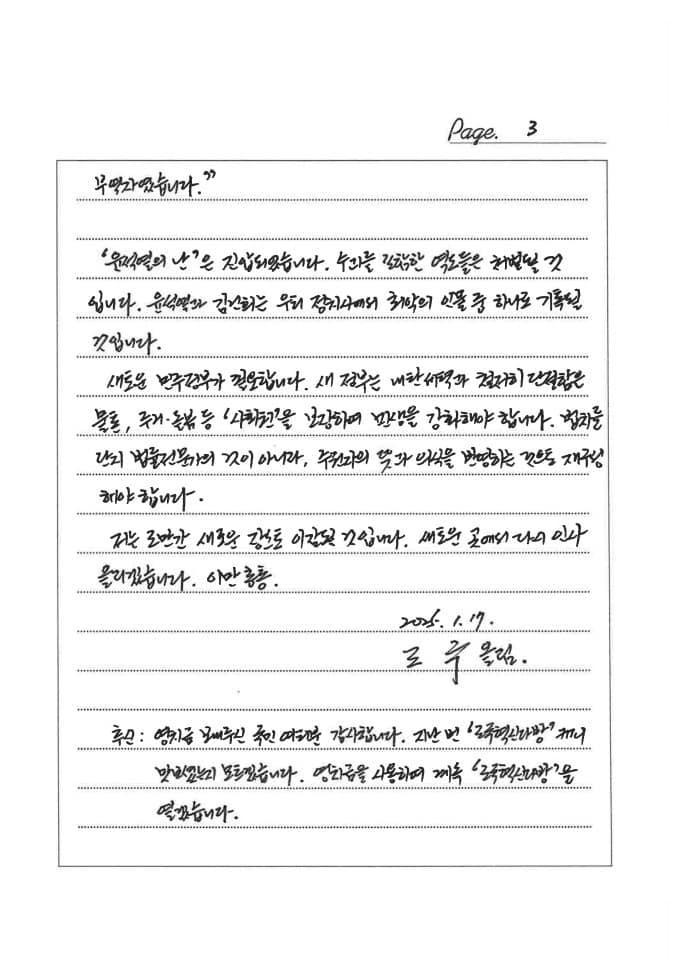 Page. 3
부역자였습니다.”
‘윤석열의 난’은 진압되었습니다. 수괴를 포함한 역도들은 처벌될 것
입니다. 윤석열과 김건희는 우리 정치사에서 최악의 인물 중 하나로 기록될
것입니다.
새로운 민주정부가 필요합니다. 새 정부는 내란세력과 철저히 단절함은
물론, 주거·돌봄 등 ‘사회권’을 보장하며 민생을 강화해야 합니다. 법치를
단지 법률전문가의 것이 아니라, 주권자의 뜻과 의식을 반영하는 것으로 재구성
해야 합니다.
저는 조만간 새로운 장소로 이감될 것입니다. 새로운 곳에서 다시 인사
올리겠습니다. 이만 총총.
2025. 1. 17.
조 국 올림.
추신: 영치금 보내주신 국민 여러분 감사합니다. 지난 번 ‘조국혁신다방’ 커피
맛있었는지 모르겠습니다. 영치금을 사용하여 계속 ‘조국혁신다방’을
열겠습니다.